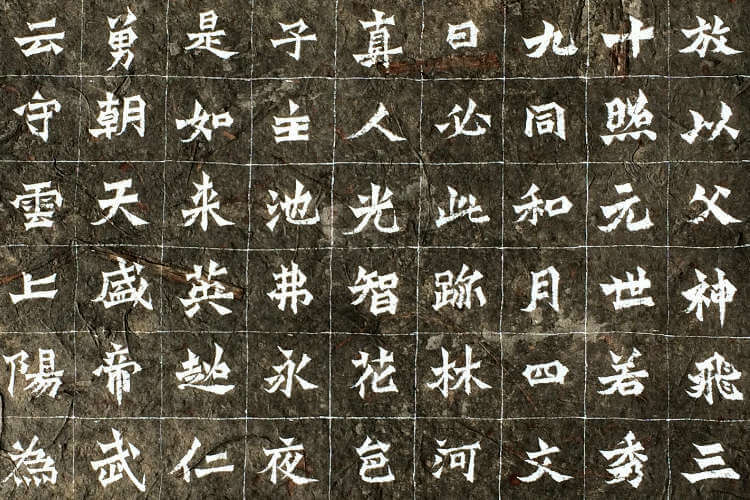 放以父神飛三
十照元世若秀
九同和月四文
日必此跡林河
真人光智花色
子主池弗永夜
是如来英仁
勇朝天盛帝武
云守雲上陽為